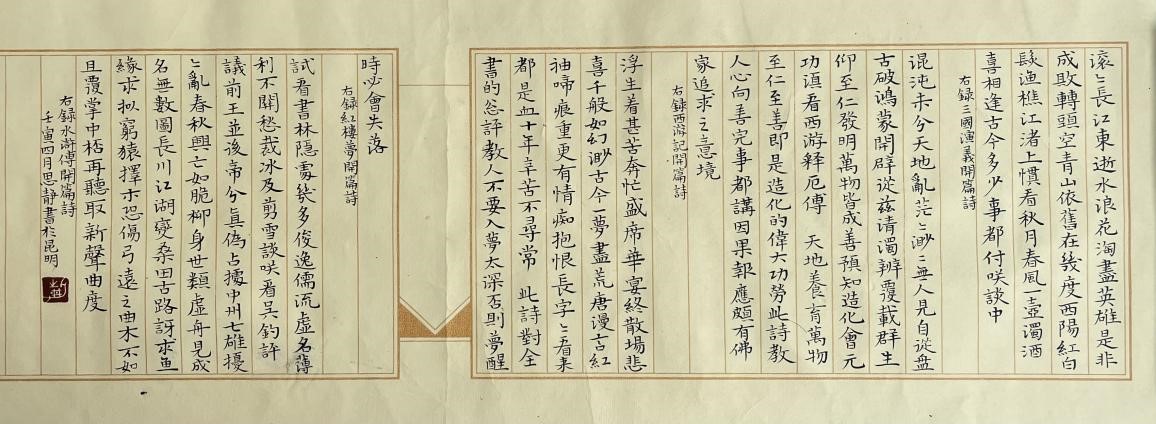 滚〻長江東逝水浪花淘盡英雄是非
成敗轉頭空青山依舊在幾度西陽紅白
髮漁樵江渚上慣看秋月春風一壺濁酒
喜相逢古今多少事都付咲談中
右録三國演義開篇詩
混沌未分天地亂茫〻渺〻無人見自從盤
古破鴻蒙開辟從兹清濁辨覆載群生
仰至仁發明萬物皆成善預知造化會元
功須看西游释厄傳 天地養育萬物
至仁至善即是造化的偉大功勞此詩教
人心向善完事都講因果報應頗有佛
家追求之意境
右録西游記開篇詩
浮生着甚苦奔忙盛席華宴終散場悲
喜千般如幻渺古今一夢盡荒唐谩言紅
袖啼痕重更有情痴抱恨長字〻看来
都是血十年辛苦不尋常 此詩對全
書的总評教人不要入夢太深否則夢醒
時必會失落
右録紅樓夢開篇詩
試看書林隠處幾多俊逸儒流虚名薄
利不關愁裁冰及剪雪談咲看吴鈎評
議前王並後帝分真偽占據中州七雄擾
〻亂春秋興亡如脆柳身世類虚舟見成
名無數圖長川江湖變桑田古路訝求魚
緣木拟窮猿擇木恐傷弓遠之曲木不如
且覆掌中杯再聽取新聲曲度
右録水滸傳開篇詩
壬寅四月思静書於昆明